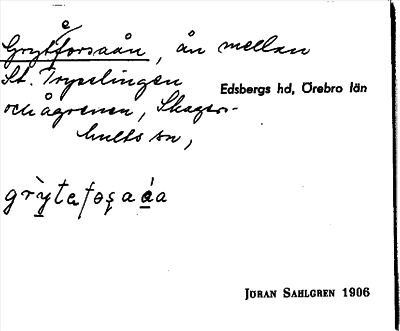 Grytforsaån, ån mellan
St. Trysslingen
och ågrenen, Skagers-
hults sn,
Edsbergs hd, Örebro län
JÖRAN SAHLGREN 1906